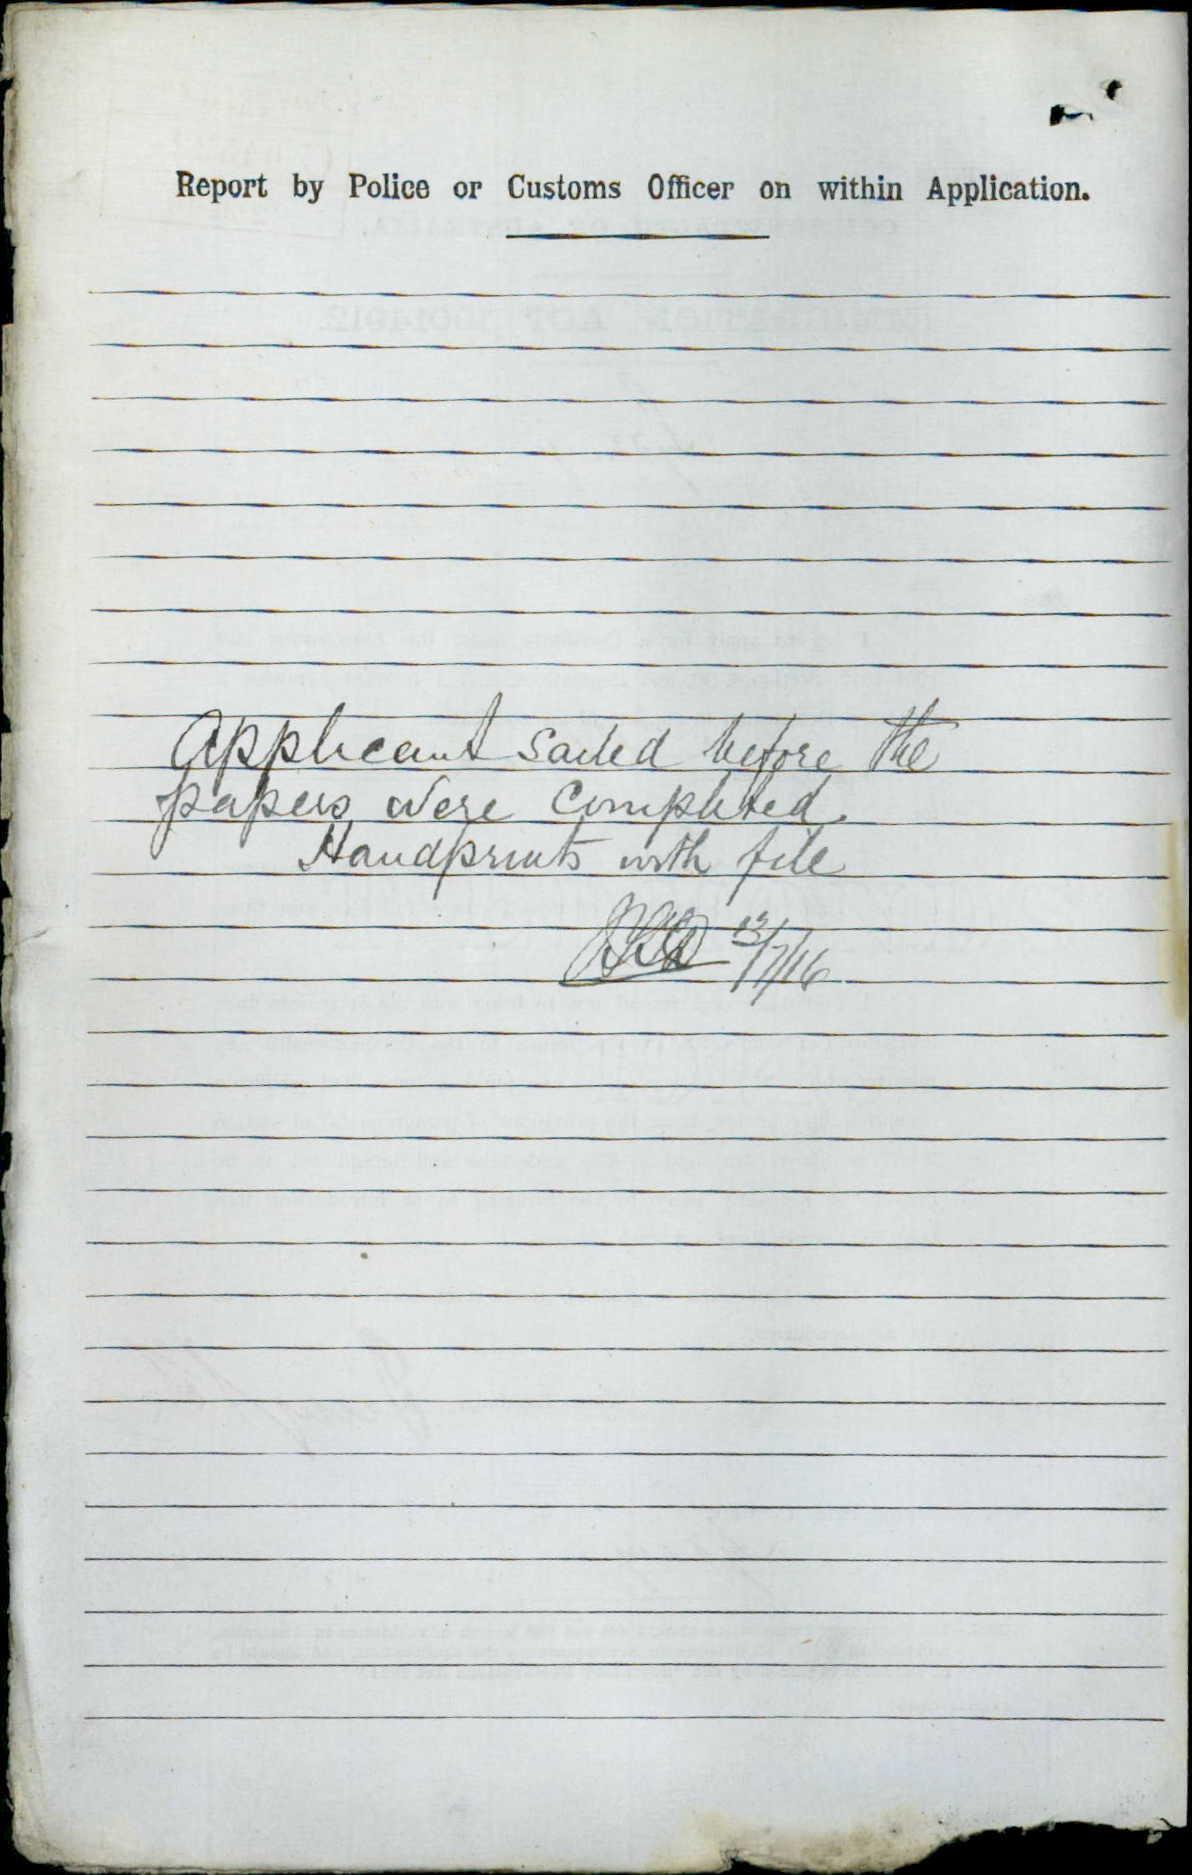 Report by Police or Customs Officer on within Application.
Applicant sailed before the
papers were completed.
Handprints with file
12/7/16